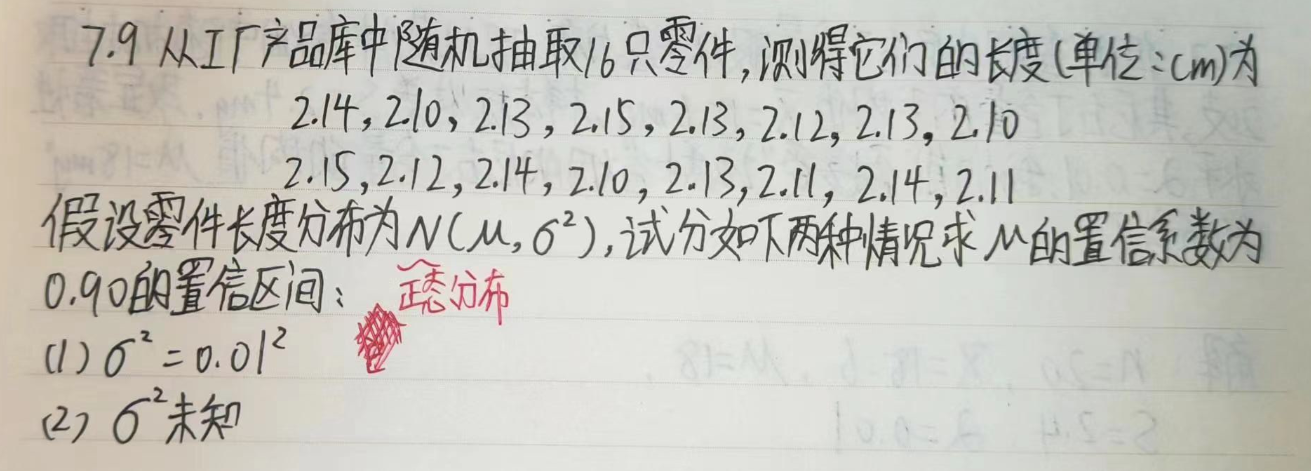 7.9 从工厂产品库中随机抽取16只零件,测得它们的长度(单位:cm)为
2.14, 2.10, 2.13, 2.15, 2.13, 2.12, 2.13, 2.10
2.15, 2.12, 2.14, 2.10, 2.13, 2.11, 2.14, 2.11
假设零件长度分布为N(μ, σ²),试分如下两种情况求μ的置信系数为
0.90的置信区间: 正态分布
(1) σ² = 0.01²
(2) σ²未知